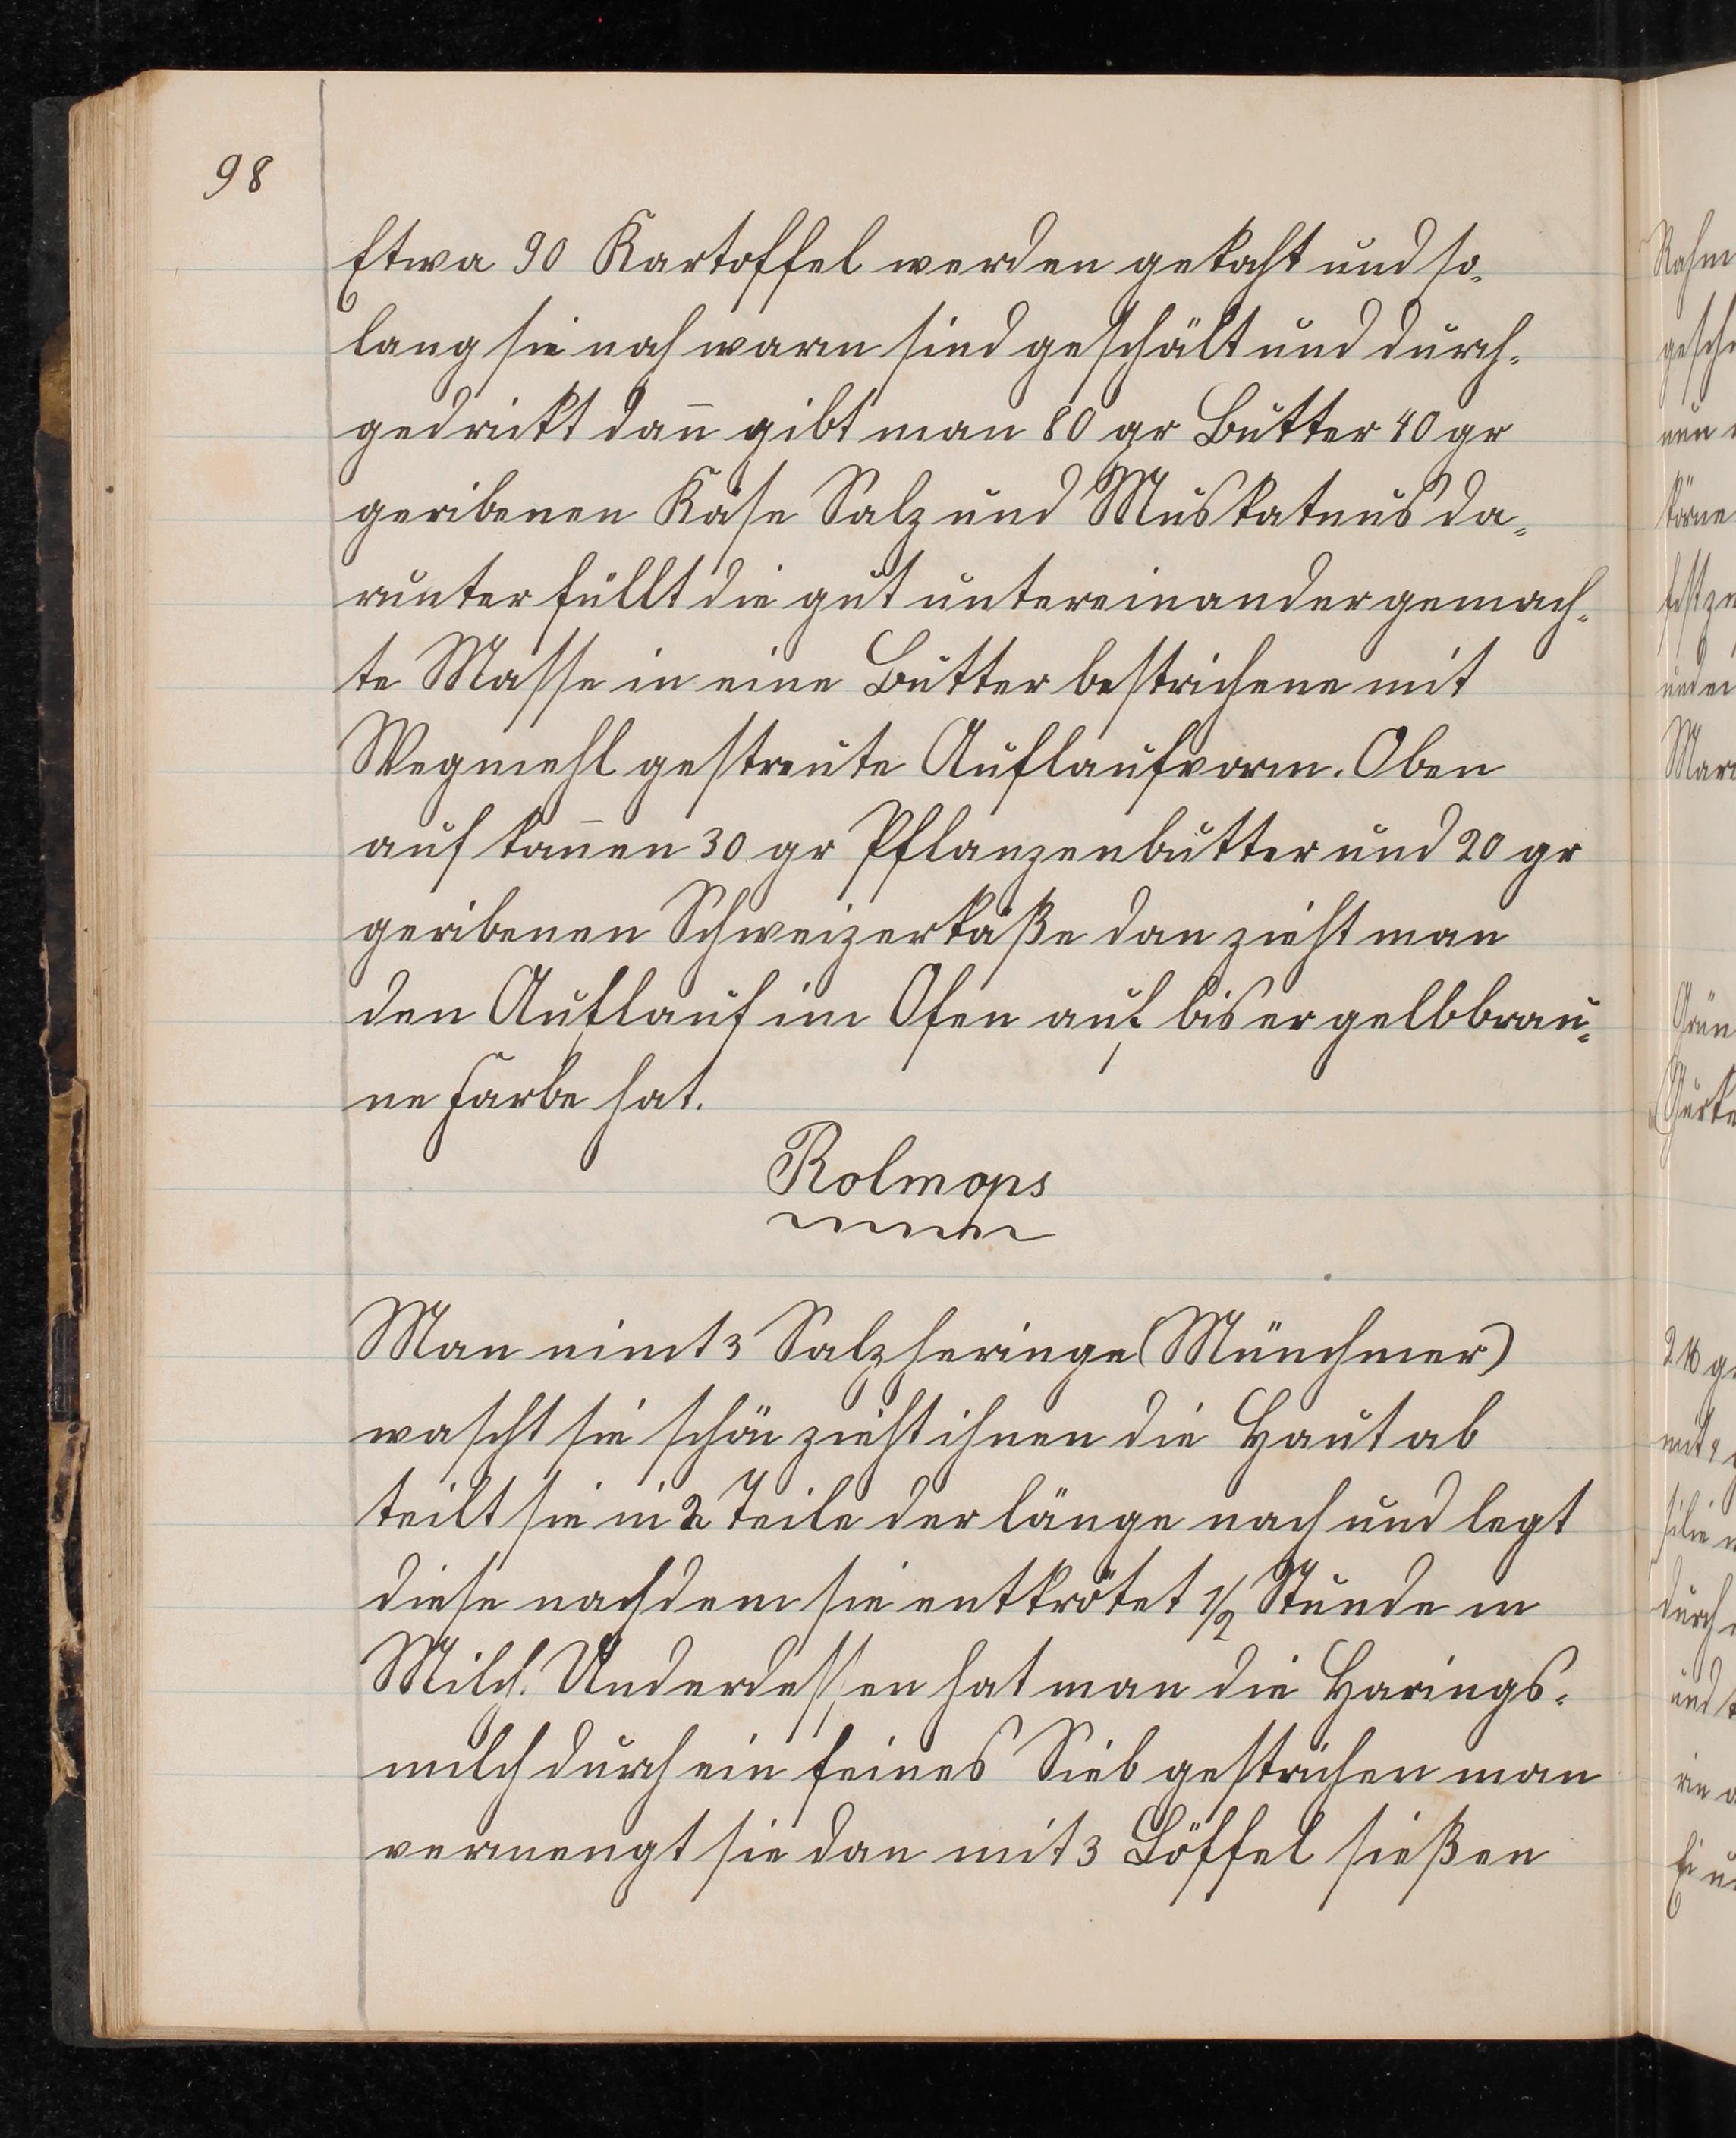 98
Etwa 90 Kartoffel werden gekoht und so-
lang sie noh warm sind geschält und durch-
gedrückt dan̄ gibt man 80 gr Butter 40 gr
geribenen Käse Salz und Muskatnus da-
runter füllt die gut untereinandergemach-
te Masse in eine Butter bestrichene mit
Wegmehl gestreute Auflaufvorm. Oben
auf kom̄en 30 gr Pflanzenbutter und 20 gr
geribenen Schweizerkäße dan zieht man
den Auflauf im Ofen auf bis er gelbbrau-
ne Farbe hat.
Rolmops
Man nimt 3 Salzheringe (Münchmer)
wascht sie schön zieht ihnen die Haut ab
teilt sie in 2 Teile der länge nach und legt
diese nachdem sie entkrötet 1/2 Stunde in
Milch. Underdessen hat man die Harings-
milch durch ein feines Sieb gestrichen man
vermengt sie dan mit 3 Löffel sießen